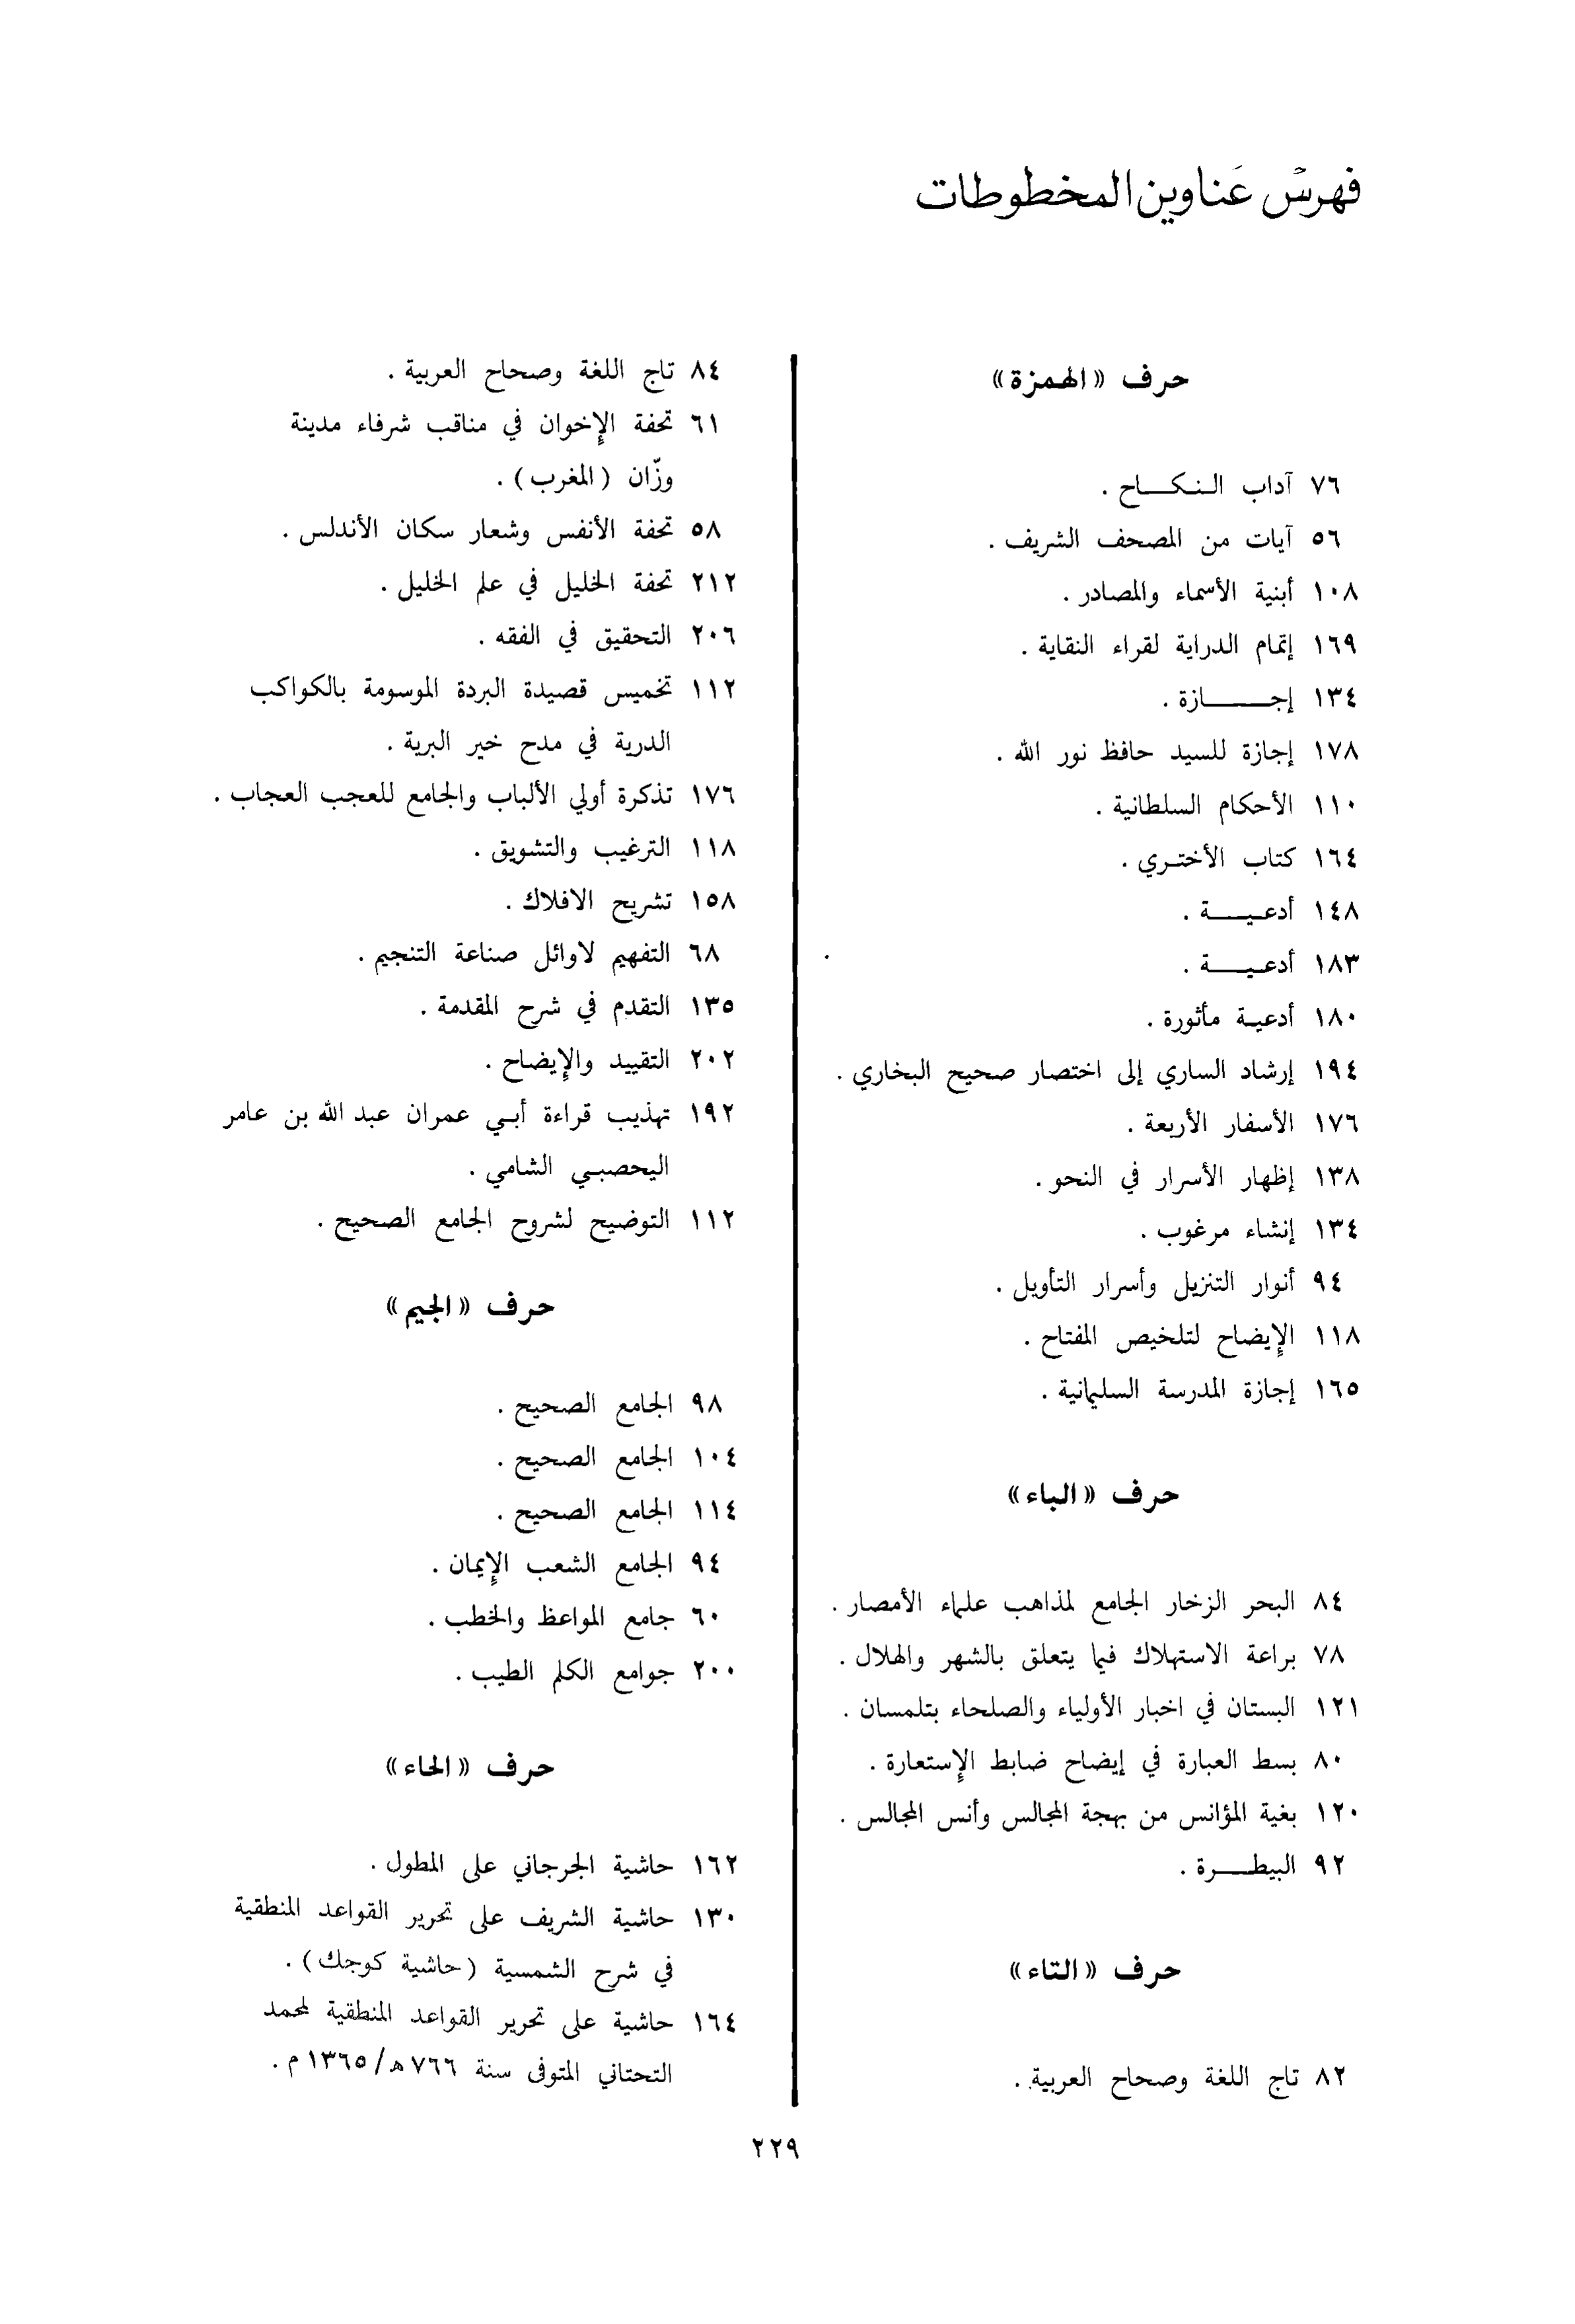 فهرس عناوين المخطوطات
حرف «الهمزة»
٧٦ آداب النكاح .
٥٦ آيات من المصحف الشريف .
١٠٨ أبنية الأسماء والمصادر .
١٦٩ إتمام الدراية لقراء النقاية .
١٣٤ إجازة .
١٧٨ إجازة للسيد حافظ نور الله .
١١٠ الأحكام السلطانية .
١٦٤ كتاب الأختري .
١٤٨ أدعية .
١٨٣ أدعية .
١٨٠ أدعية مأثورة .
١٩٤ إرشاد الساري إلى اختصار صحيح البخاري .
١٧٦ الأسفار الأربعة .
١٣٨ إظهار الأسرار في النحو .
١٣٤ إنشاء مرغوب .
٩٤ أنوار التنزيل وأسرار التأويل .
١١٨ الإيضاح لتلخيص المفتاح .
١٦٥ إجازة المدرسة السليمانية .
حرف «الباء»
٨٤ البحر الزخار الجامع لمذاهب علماء الأمصار .
٧٨ براعة الاستهلاك فيما يتعلق بالشهر والهلال .
١٢١ البستان في اخبار الأولياء والصلحاء بتلمسان .
٨٠ بسط العبارة في إيضاح ضابط الإستعارة .
١٢٠ بغية المؤانس من بهجة المجالس وأنس المجالس .
٩٢ البيطرة .
حرف «التاء»
٨٢ تاج اللغة وصحاح العربية .
٨٤ تاج اللغة وصحاح العربية .
٦١ تحفة الإخوان في مناقب شرفاء مدينة
وزّان (المغرب) .
٥٨ تحفة الأنفس وشعار سكان الأندلس .
٢١٢ تحفة الخليل في علم الخليل .
٢٠٦ التحقيق في الفقه .
١١٢ تخميس قصيدة البردة الموسومة بالكواكب
الدرية في مدح خير البرية .
١٧٦ تذكرة أولي الألباب والجامع للعجب العجاب .
١١٨ الترغيب والتشويق .
١٥٨ تشريح الافلاك .
٦٨ التفهيم لاوائل صناعة التنجيم .
١٣٥ التقدم في شرح المقدمة .
٢٠٢ التقييد والإيضاح .
١٩٢ تهذيب قراءة أبي عمران عبد الله بن عامر
اليحصبي الشامي .
١١٢ التوضيح لشروح الجامع الصحيح .
حرف «الجيم»
٩٨ الجامع الصحيح .
١٠٤ الجامع الصحيح .
١١٤ الجامع الصحيح .
٩٤ الجامع الشعب الإيمان .
٦٠ جامع المواعظ والخطب .
٢٠٠ جوامع الكلم الطيب .
حرف «الحاء»
١٦٢ حاشية الجرجاني على المطول .
١٣٠ حاشية الشريف على تحرير القواعد المنطقية
في شرح الشمسية (حاشية كوجك) .
١٦٤ حاشية على تحرير القواعد المنطقية لمحمد
التحتاني المتوفى سنة ٧٦٦ هـ/١٣٦٥ م .
٢٢٩